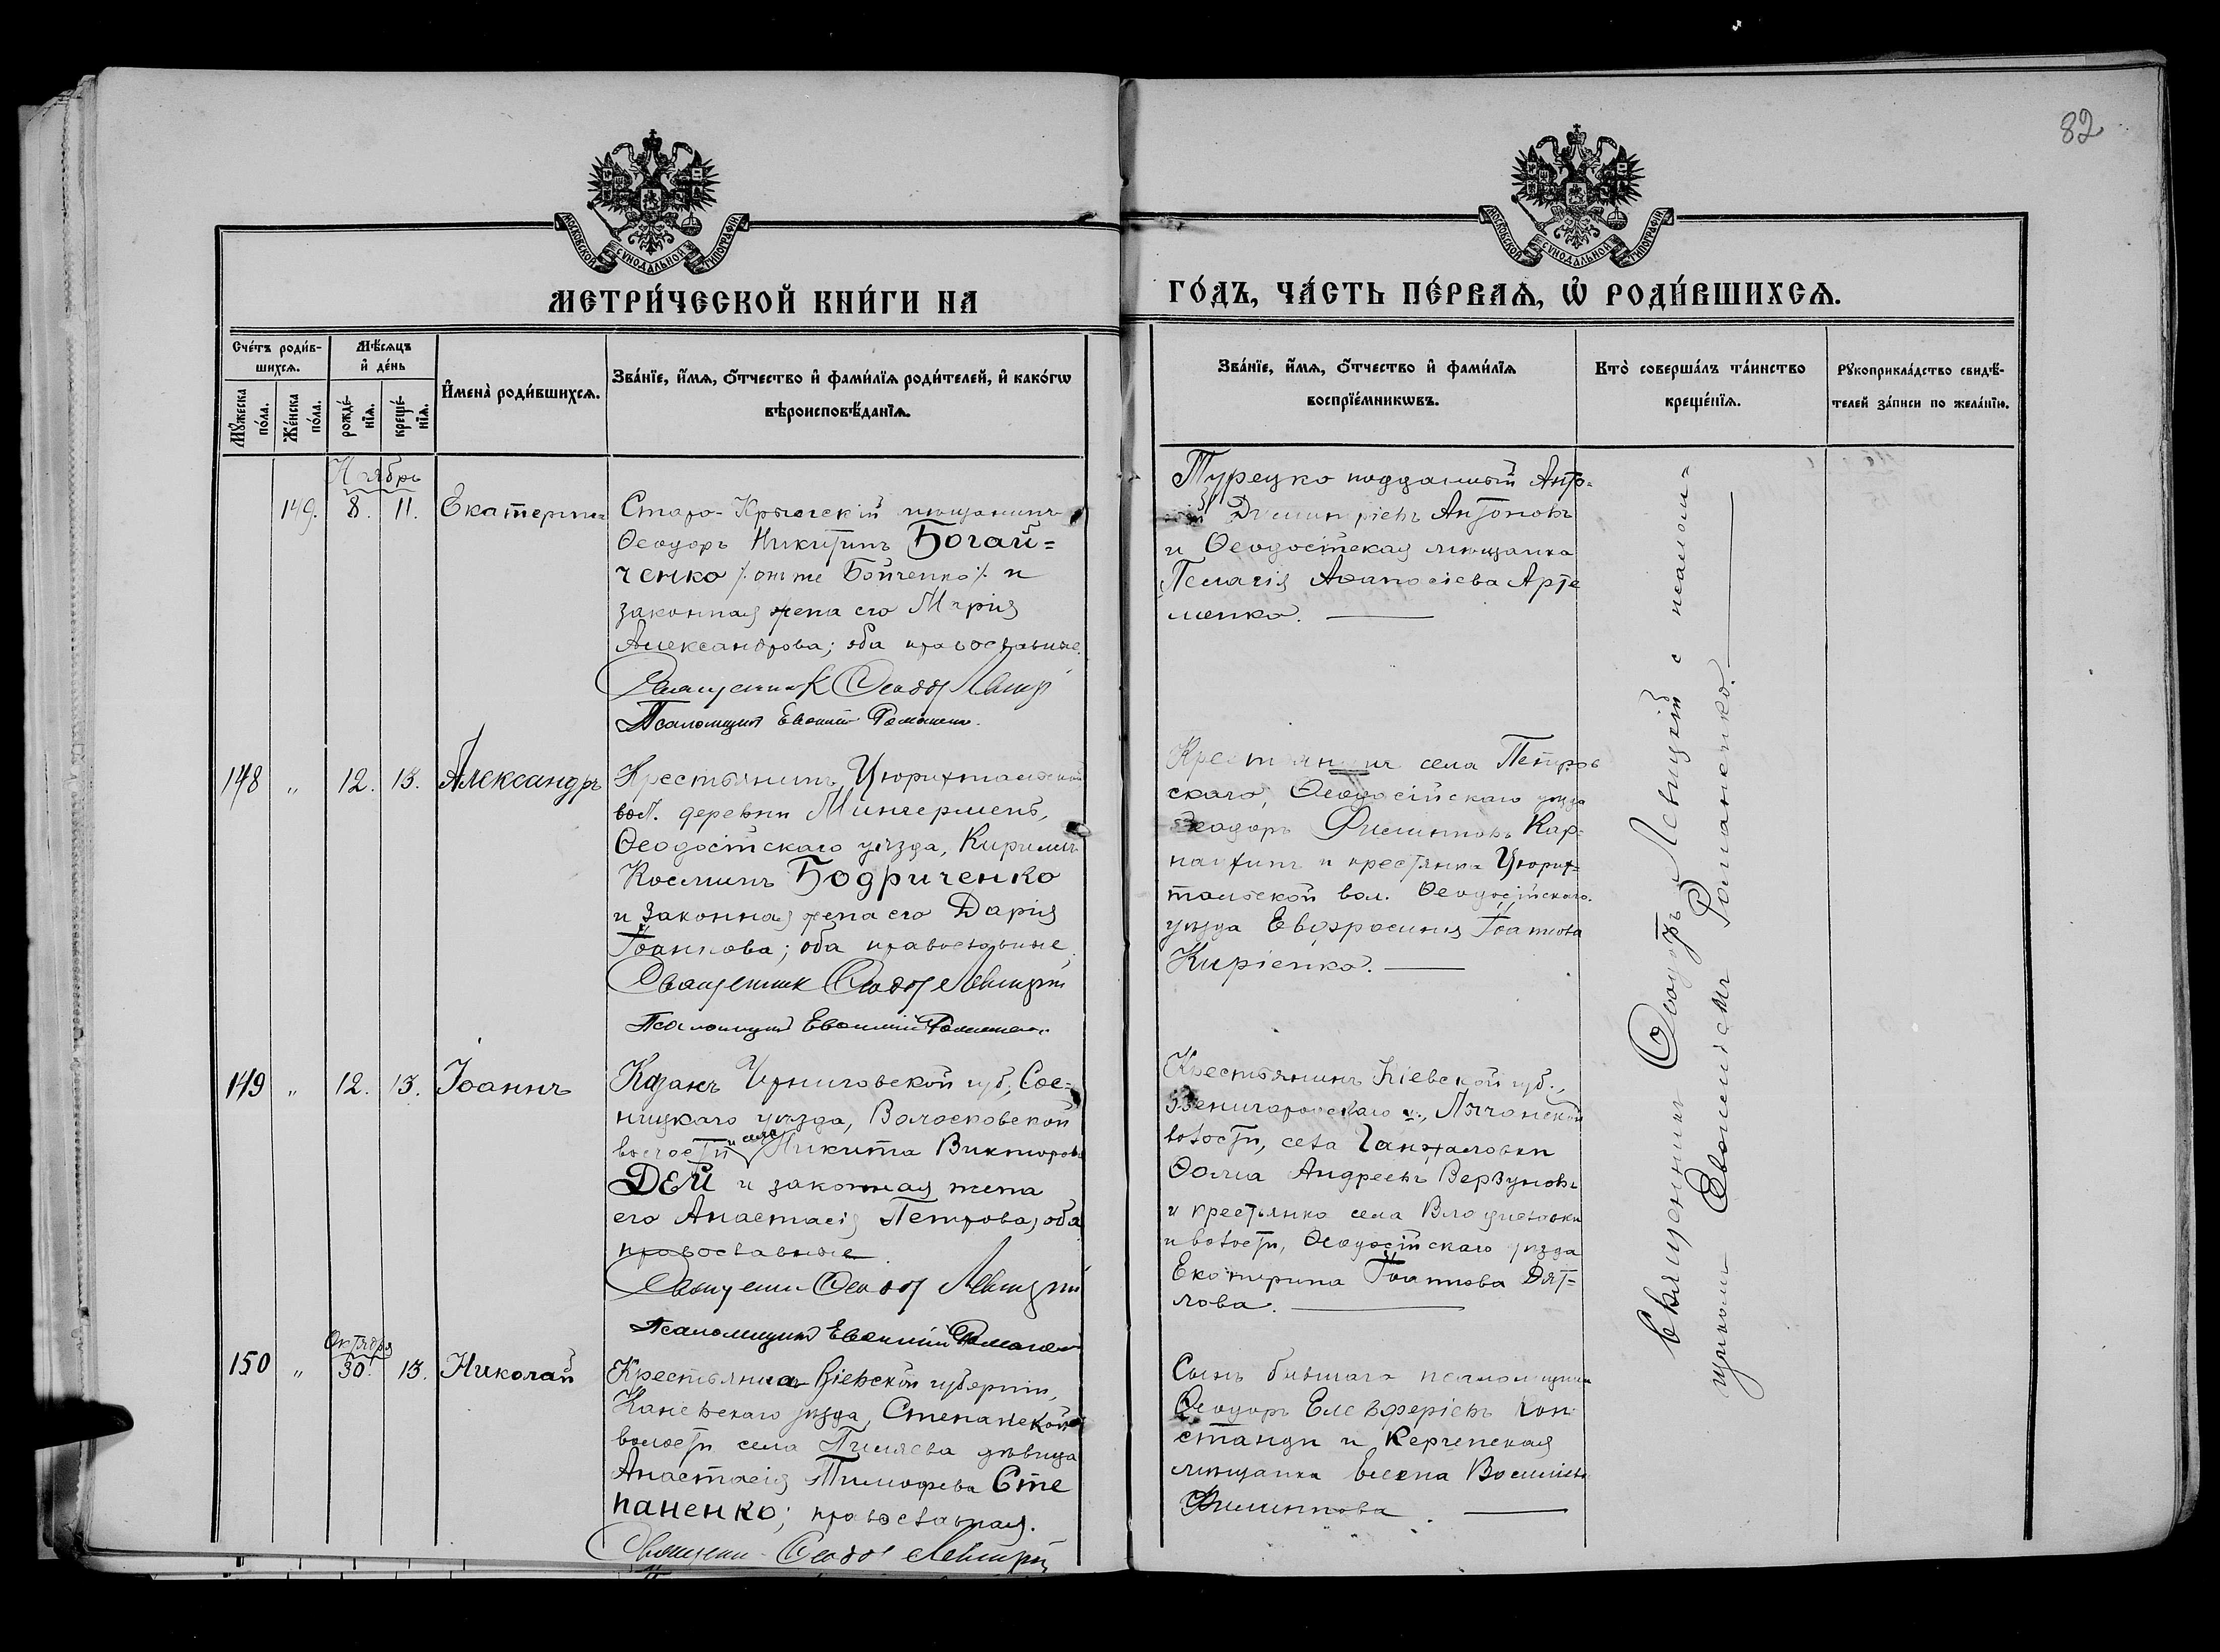 82
МОСКОВСКОЙ СУНОДАЛЬНОЙ ТИПОГРАФІИ
МОСКОВСКОЙ СУНОДАЛЬНОЙ ТИПОГРАФІИ
МЕТРИ́ЧЕСКОЙ КНИ́ГИ НА
ГО́ДЪ, ЧА́СТЬ ПЕ́РВАѦ, Ѡ҆ РОДИ́ВШИХСѦ.
Сче́тъ роди́в-
шихсѧ.
Мꙋ́жеска
по́ла.
Же́нска
по́ла.
Мѣ́сѧцъ
и҆ де́нь
рожде́-
нїѧ.
креще́-
нїѧ.
И҆мена̀ роди́вшихсѧ.
Зва́нїе, и҆́мѧ, ѻ҆́тчество и҆ фами́лїѧ роди́телей, и҆ како́гѡ
вѣроисповѣ́данїѧ.
Зва́нїе, и҆́мѧ, ѻ҆́тчество и҆ фами́лїѧ
воспрїе́мникѡвъ.
Кто̀ соверша́лъ та́инство
креще́нїѧ.
Рꙋкоприкла́дство свидѣ́-
телей за́писи по жела́нїю.
Ноябрь
149. 8. 11. Екатерина
Старо-Крымскій мѣщанинъ
Ѳеодоръ Никитинъ Богай=
ченко /: онъ же Бойченко :/ и
законная жена его Марія
Александрова; оба православные.
Священникъ Ѳеодоръ Левицкій
Псаломщикъ Евѳимій Романенко.
Турецко подданный Анто-
ній Димитріевъ Антоновъ
и Ѳеодосійская мѣщанка
Пелагія Аѳанасіева Арте
менко.
148 " 12. 13. Александръ
Крестьянинъ Цюрихтальской
вол. деревни Минчермень,
Ѳеодосійскаго уѣзда, Кириллъ
Косминъ Бодриченко
и законная жена его Дарія
Іоаннова; оба православные.
Священникъ Ѳеодоръ Левицкій
Псаломщикъ Евѳимій Романенко.
Крестьянинъ села Петров
скаго, Ѳеодосійскаго уѣзда
Ѳеодоръ Филипповъ Кар-
наухинъ и крестьянка Цюрих=
тальской вол. Ѳеодосійскаго
уѣзда Евфросинія Іоаннова
Киріенко.
149 " 12. 13. Іоаннъ
Казакъ Черниговской губ., Сос-
ницкаго уѣзда, Волосковской
волости и села Никита Викторовъ
Дей и законная жена
его Анастасія Петрова, оба
православные.
Священникъ Ѳеодоръ Левицкій
Псаломщикъ Евѳимій Романенко
Крестьянинъ Кіевской губ.,
Звенигородскаго у.,
волости, села
Ѳома Андреевъ Верзуновъ
и крестьянка села Владиславовки
и волости, Ѳеодосійскаго уѣзда
Екатерина Іоаннова Дят=
лова.
Октября
150 " 30. 13. Николай
Крестьянка Кіевской губерніи,
Каневскаго уѣзда, Степанской
волости села Пиляева дѣвица
Анастасія Тимофеева Сте
паненко; православная.
Священникъ Ѳеодоръ Левицкій
Сынъ бывшаго псаломщика
Ѳеодоръ Елевферіевъ Кон
станди и Керченская
мѣщанка Елена Василіева
Филиппова.
Священникъ Ѳеодоръ Левицкій с псалом=
щикомъ Евѳиміемъ Романенко.